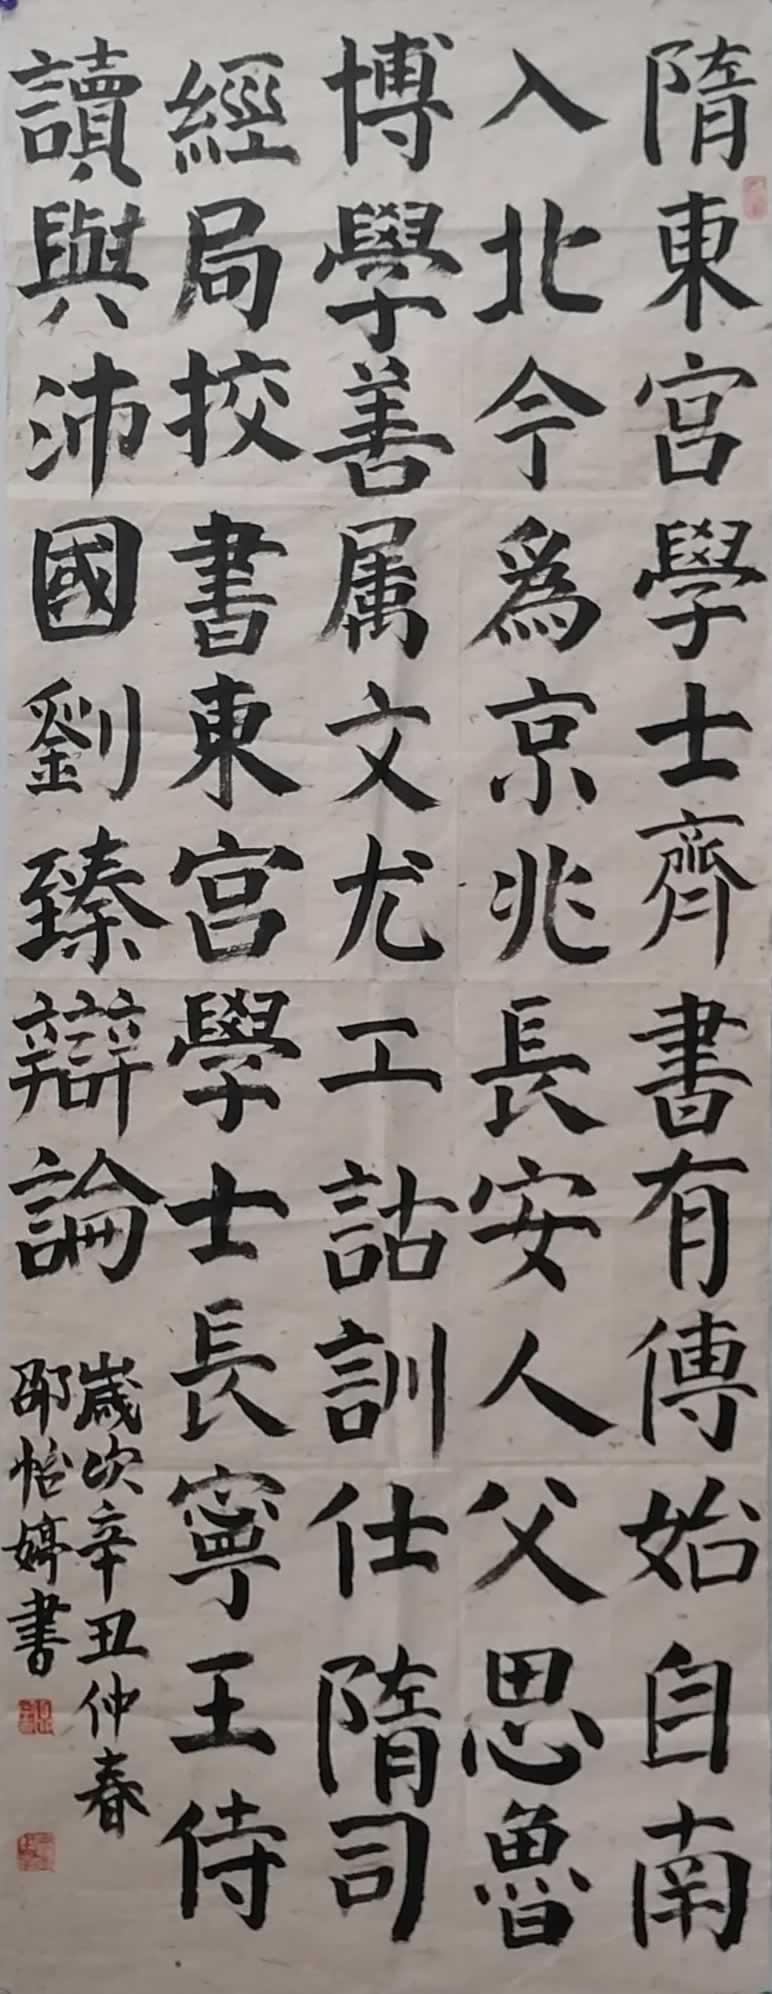 隋東宮學士齊書有傳始自南
入北今爲京兆長安人父思魯
博學善属文尤工詁訓仕隋司
經局挍書東宮學士長寧王侍
讀與沛國劉臻辯論
歲次辛丑仲春
邵怡婷書